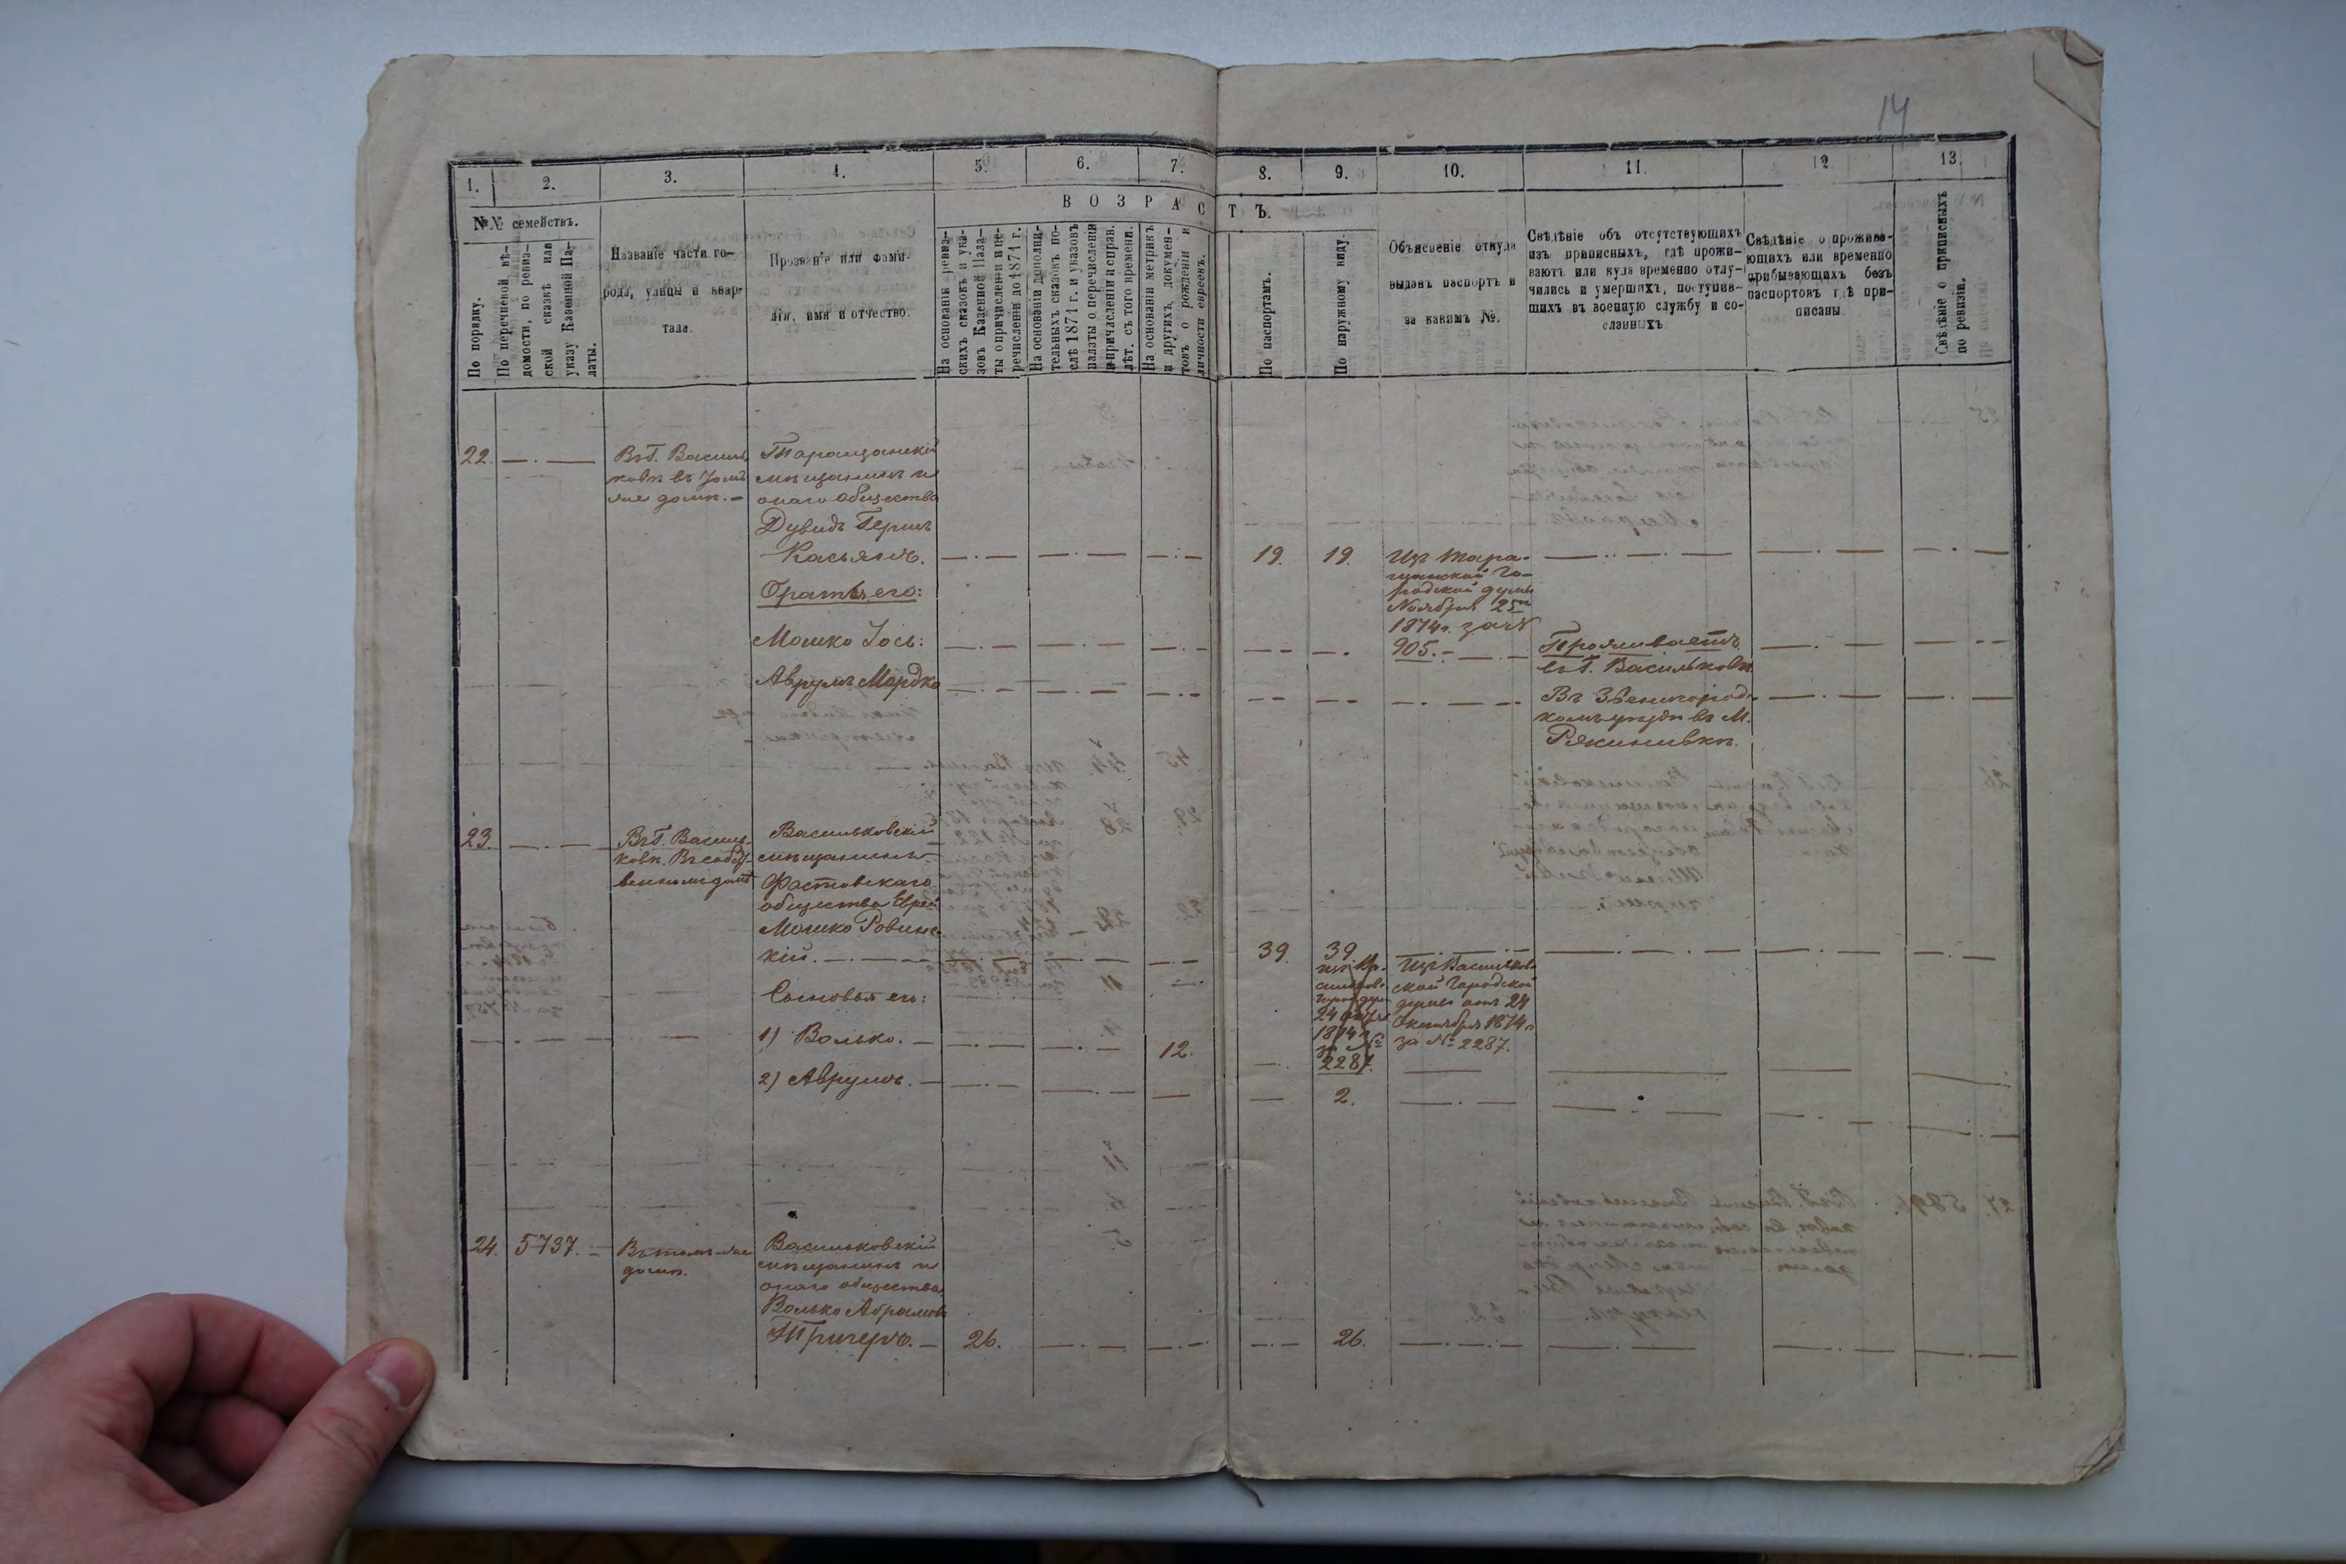 14
1.
2.
3.
4.
5.
6.
7.
8.
9.
10.
11.
12
13.
№№ семействъ.
В О З Р А С Т Ъ.
По порядку.
По перечневой вѣ-
домости, по ревиз-
ской сказкѣ или
указу Казенной Па-
латы.
Названіе части го-
рода, улицы и квар-
тала.
Прозваніе или фами-
лія, имя и отчество.
На основаніи ревиз-
скихъ сказокъ и ука-
зовъ Казенной Пала-
ты о причисленіи и пе-
речисленіи до 1871 г.
На основаніи дополни-
тельныхъ сказокъ по-
слѣ 1871 г. и указовъ
палаты о перечисленіи
и причисленіи и справ.
лѣт. съ того времени.
На основаніи метрикъ
и другихъ, докумен-
товъ о рожденіи и
личности евреевъ.
По паспортамъ.
По наружному виду.
Объясненіе откуда
выданъ паспортъ и
за какимъ №.
Свѣдѣніе объ отсутствующихъ
изъ приписныхъ, гдѣ прожи-
ваютъ или куда временно отлу-
чились и умершихъ, поступив-
шихъ въ военную службу и со-
сланныхъ
Свѣдѣніе о прожива-
ющихъ или временно
прибывающихъ безъ
паспортовъ гдѣ при-
писаны
Свѣдѣніе о приписныхъ
по ревизіи.
22.
Въ Г. Василь
ковѣ въ томъ
же домѣ. –
Таращанскій
мѣщанинъ и
онаго общества
Дувидъ Герш
Касьянъ.
19.
19.
Изъ Тара-
щанской Го-
родской думы
Ноября 25го
1874 г. за №
905. –
Братья его:
Мошко Іось:
Проживаетъ
въ Г. Васильковѣ
Аврумъ Мордко
Въ Звенигород-
комъ уѣздѣ въ М.
23.
Въ Г. Василь-
ковѣ. Въ собст-
венномъ домѣ
Васильковскій
мѣщанинъ
Фастовскаго
общества Еврей
Мошко Ровинс-
кій.
39.
39.
24
1874 г.
за №
2287.
Изъ Васильков-
ской Городской
думы отъ 24
Октября 1874 г.
за № 2287.
Сыновья его:
1) Волько. –
12.
2) Аврумъ. –
2.
24.
5737. –
Въ томъ-же
домѣ.
Васильковскій
мѣщанинъ и
онаго общества
Волько Абрамовъ
Тригеръ. –
26.
26.